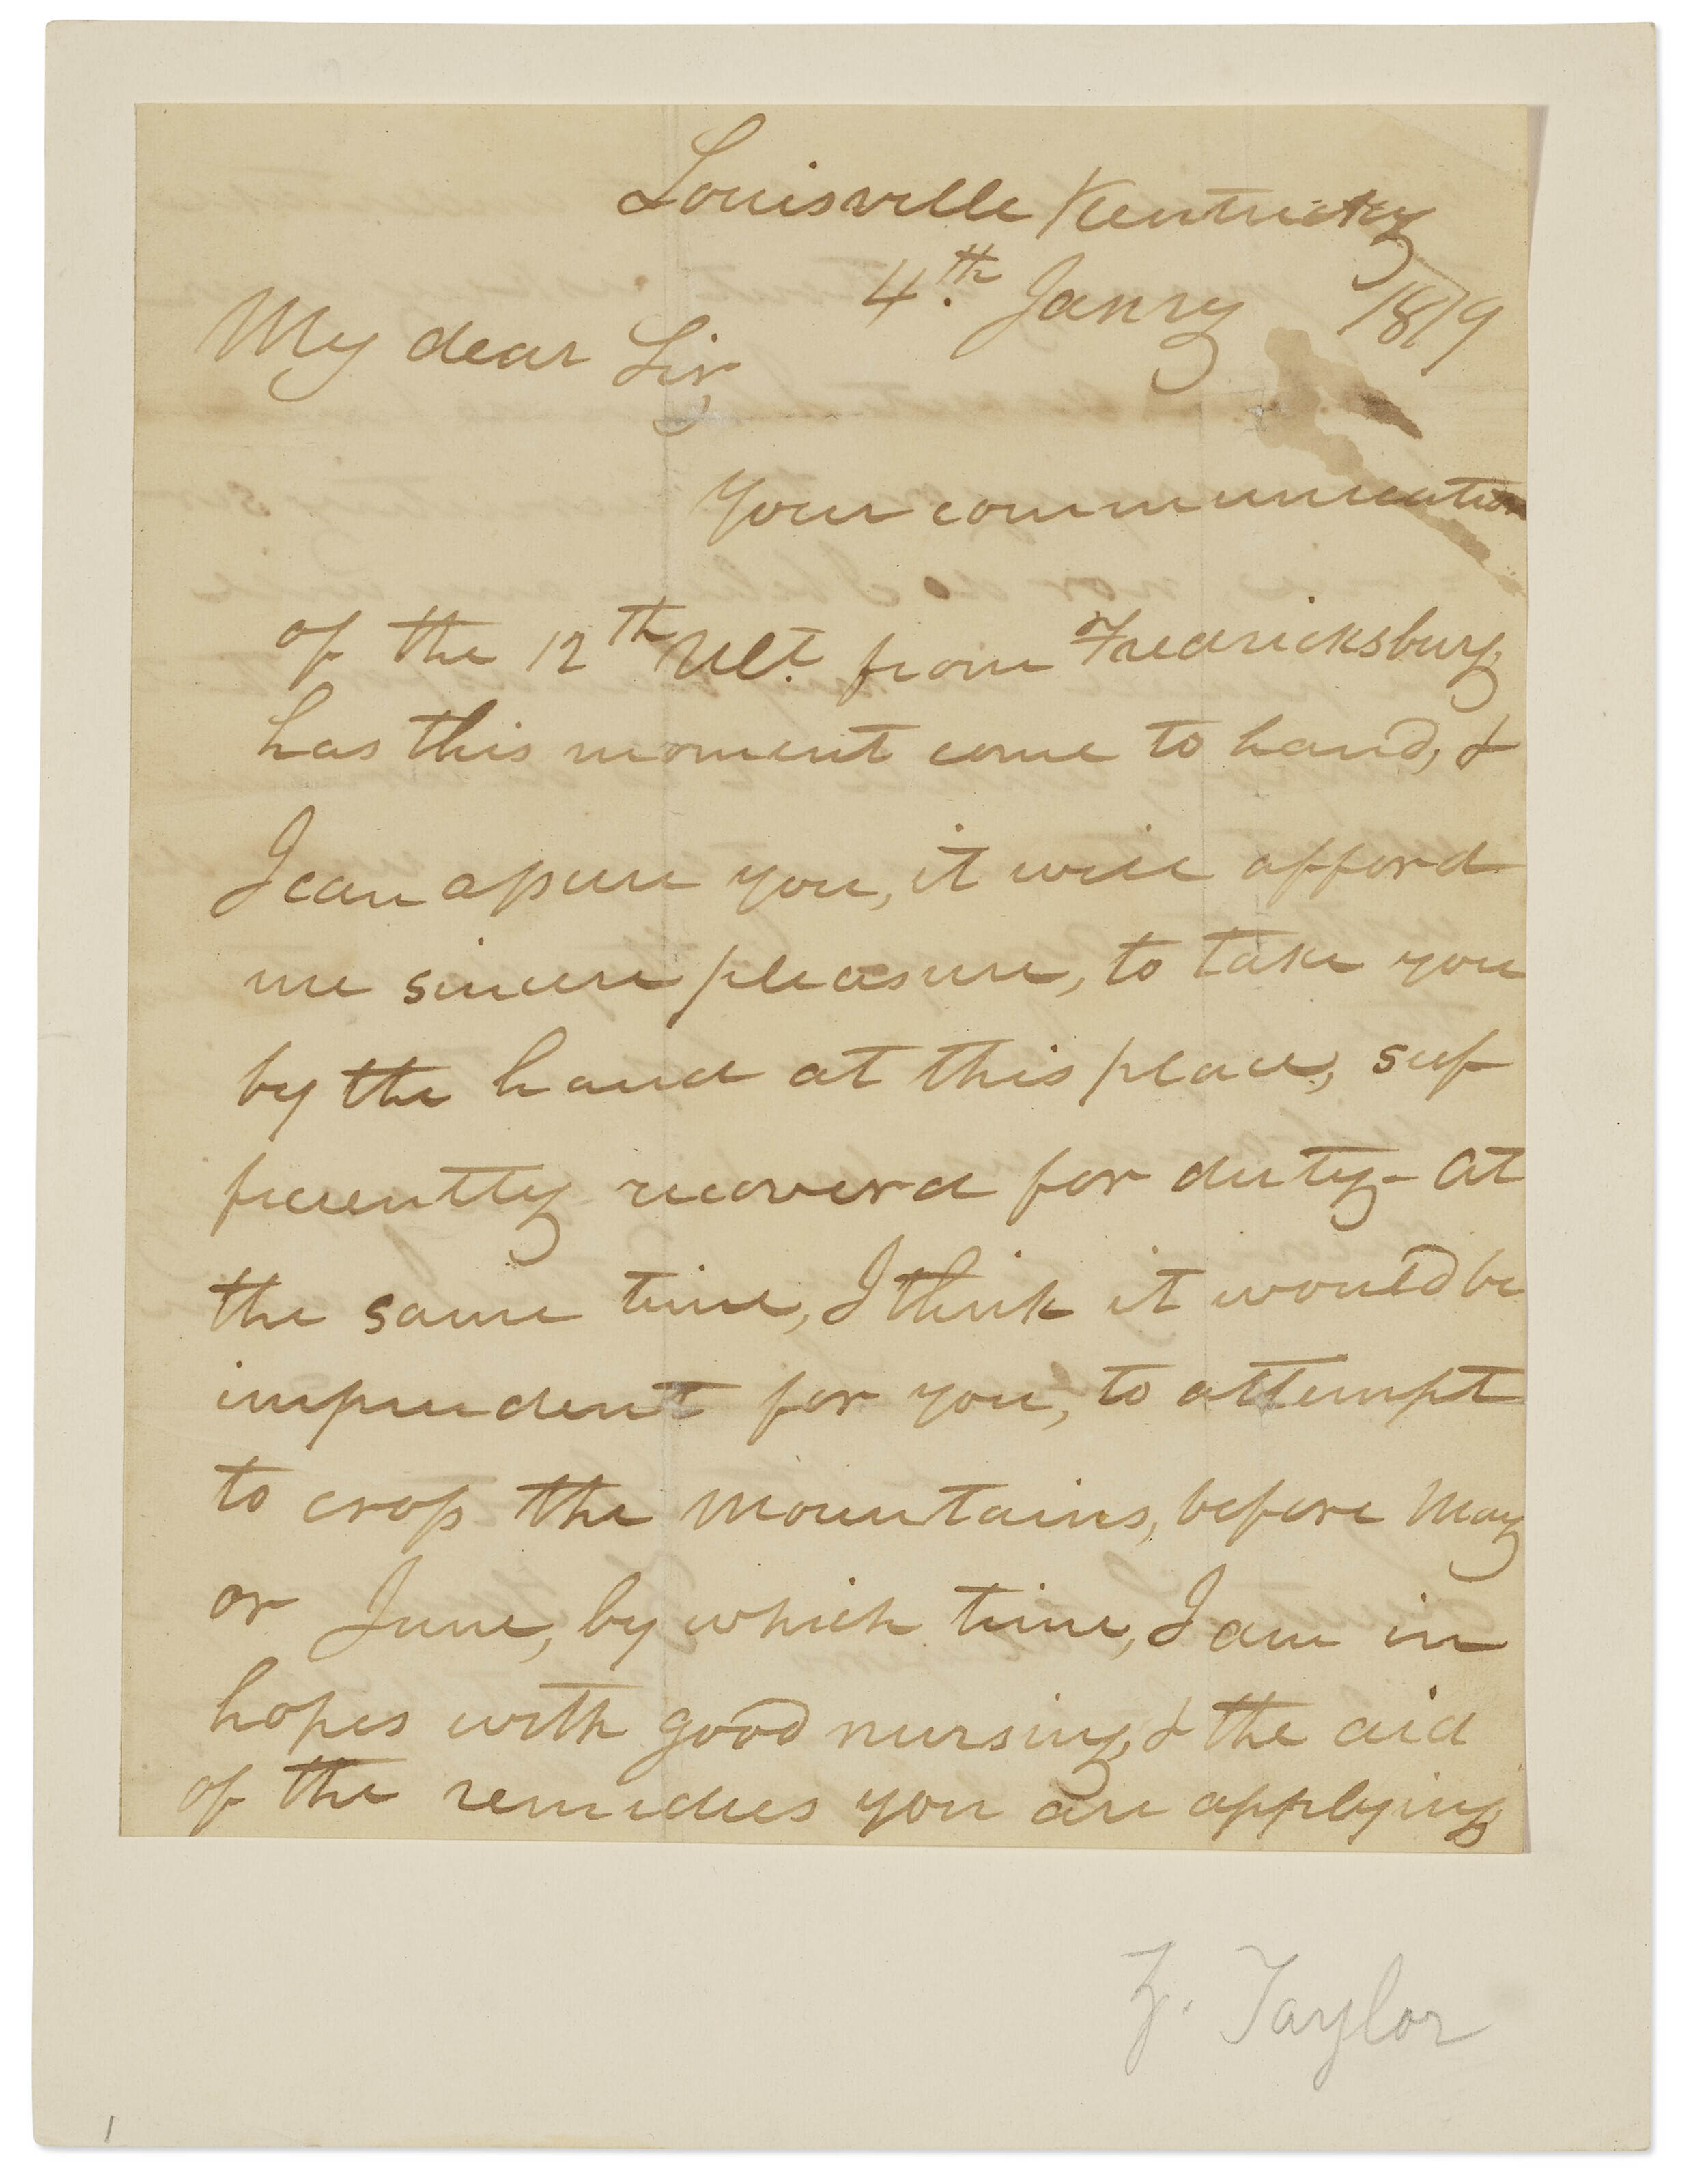 Louisville Kentucky
4th. Janry 1819
My dear Sir,
Your communication
of the 12th Ult. from Fredericksburg
has this moment come to hand, &
I can assure you, it will afford
me sincere pleasure, to take you
by the hand at this place, suf
ficiently recoverd for duty - At
the same time, I think it would be
imprudent for you, to attempt
to cross the mountains, before May
or June, by which time, I am in
hopes with good nursing, & the aid
of the remedies you are applying
Z. Taylor
1